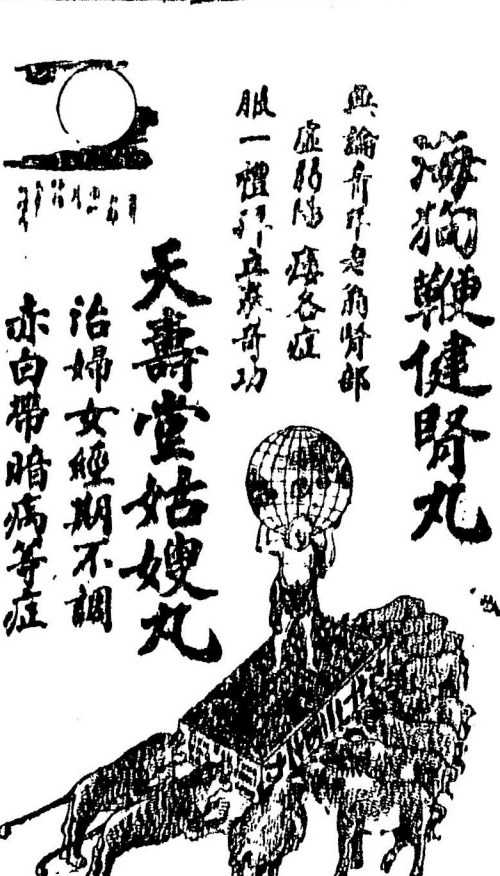 海狗鞭健腎丸
無論年老腎部
虛弱陽痿各症
服一禮拜立奇功
天壽堂姑嫂丸
治婦女經期不調
赤白帶暗病等症